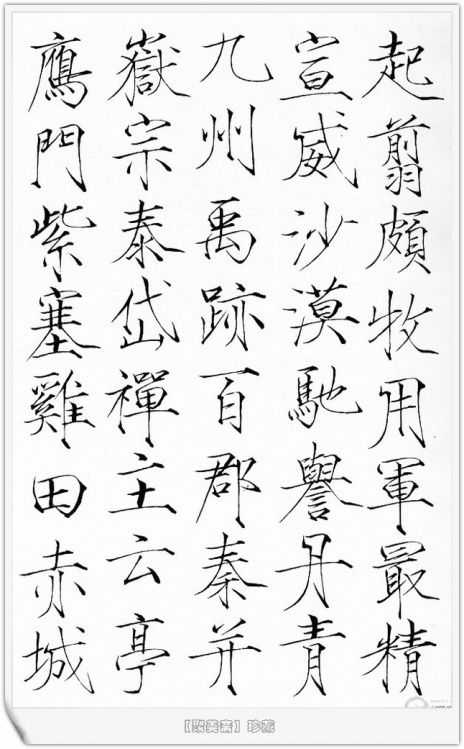 起翦頗牧用軍最精
宣威沙漠馳譽丹青
九州禹跡百郡秦并
嶽宗泰岱禪主云亭
鴈門紫塞雞田赤城
【聚美斋】珍藏